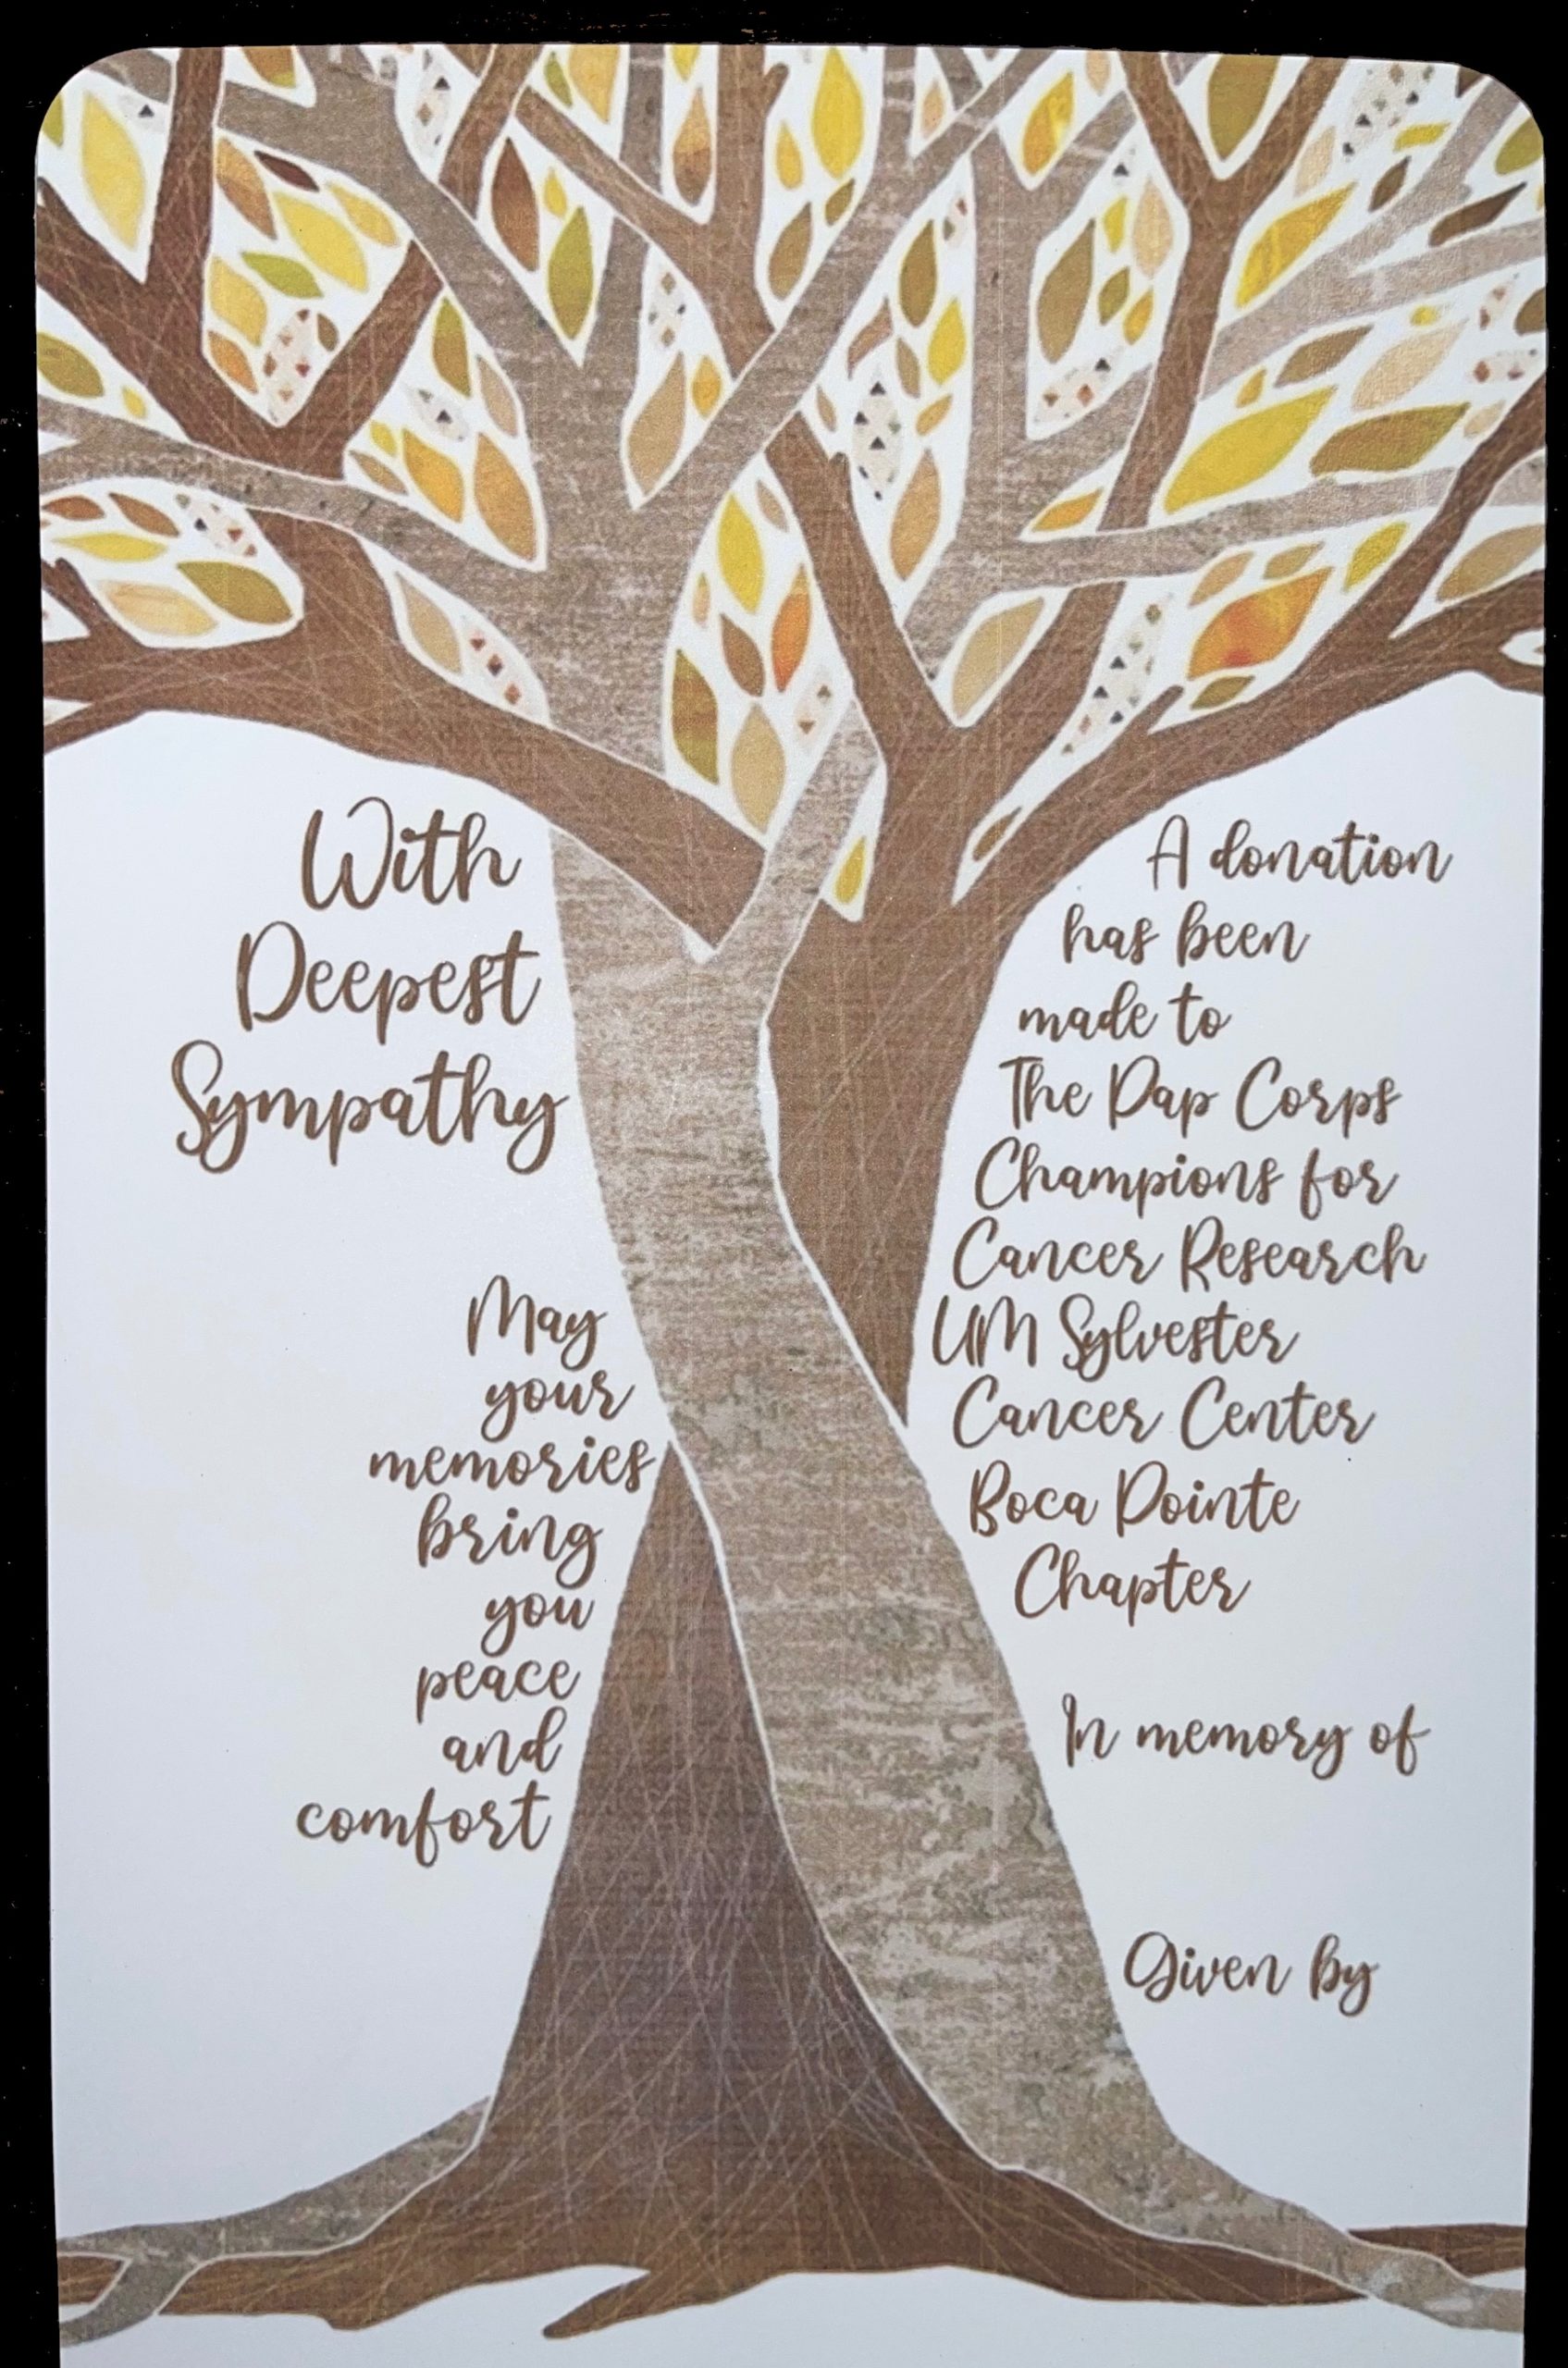 With
Deepest
Sympathy
May
your
memories
bring
you
peace
and
comfort
A donation
has been
made to
The Pap Corps
Champions for
Cancer Research
UM Sylvester
Cancer Center
Boca Pointe
Chapter
In memory of
Given by